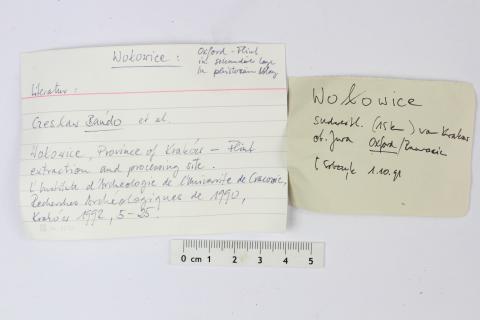 Wołowice :
Oxford - Flint
in sekundärer Lage
in pleistozän
Literatur :
Czesław Bańdo et al.
Wołowice, Province of Kraków – Flint
extraction and processing site.
L'Institute d'Archeologie de l'Université de Cracovie,
Recherches Archeologiques de 1990,
Kraków 1992, 5-25.
WOŁOWICE
südwestl. (15 km) von Krakau
ob. Jura Oxford/
1.10.91
0 cm 1 2 3 4 5